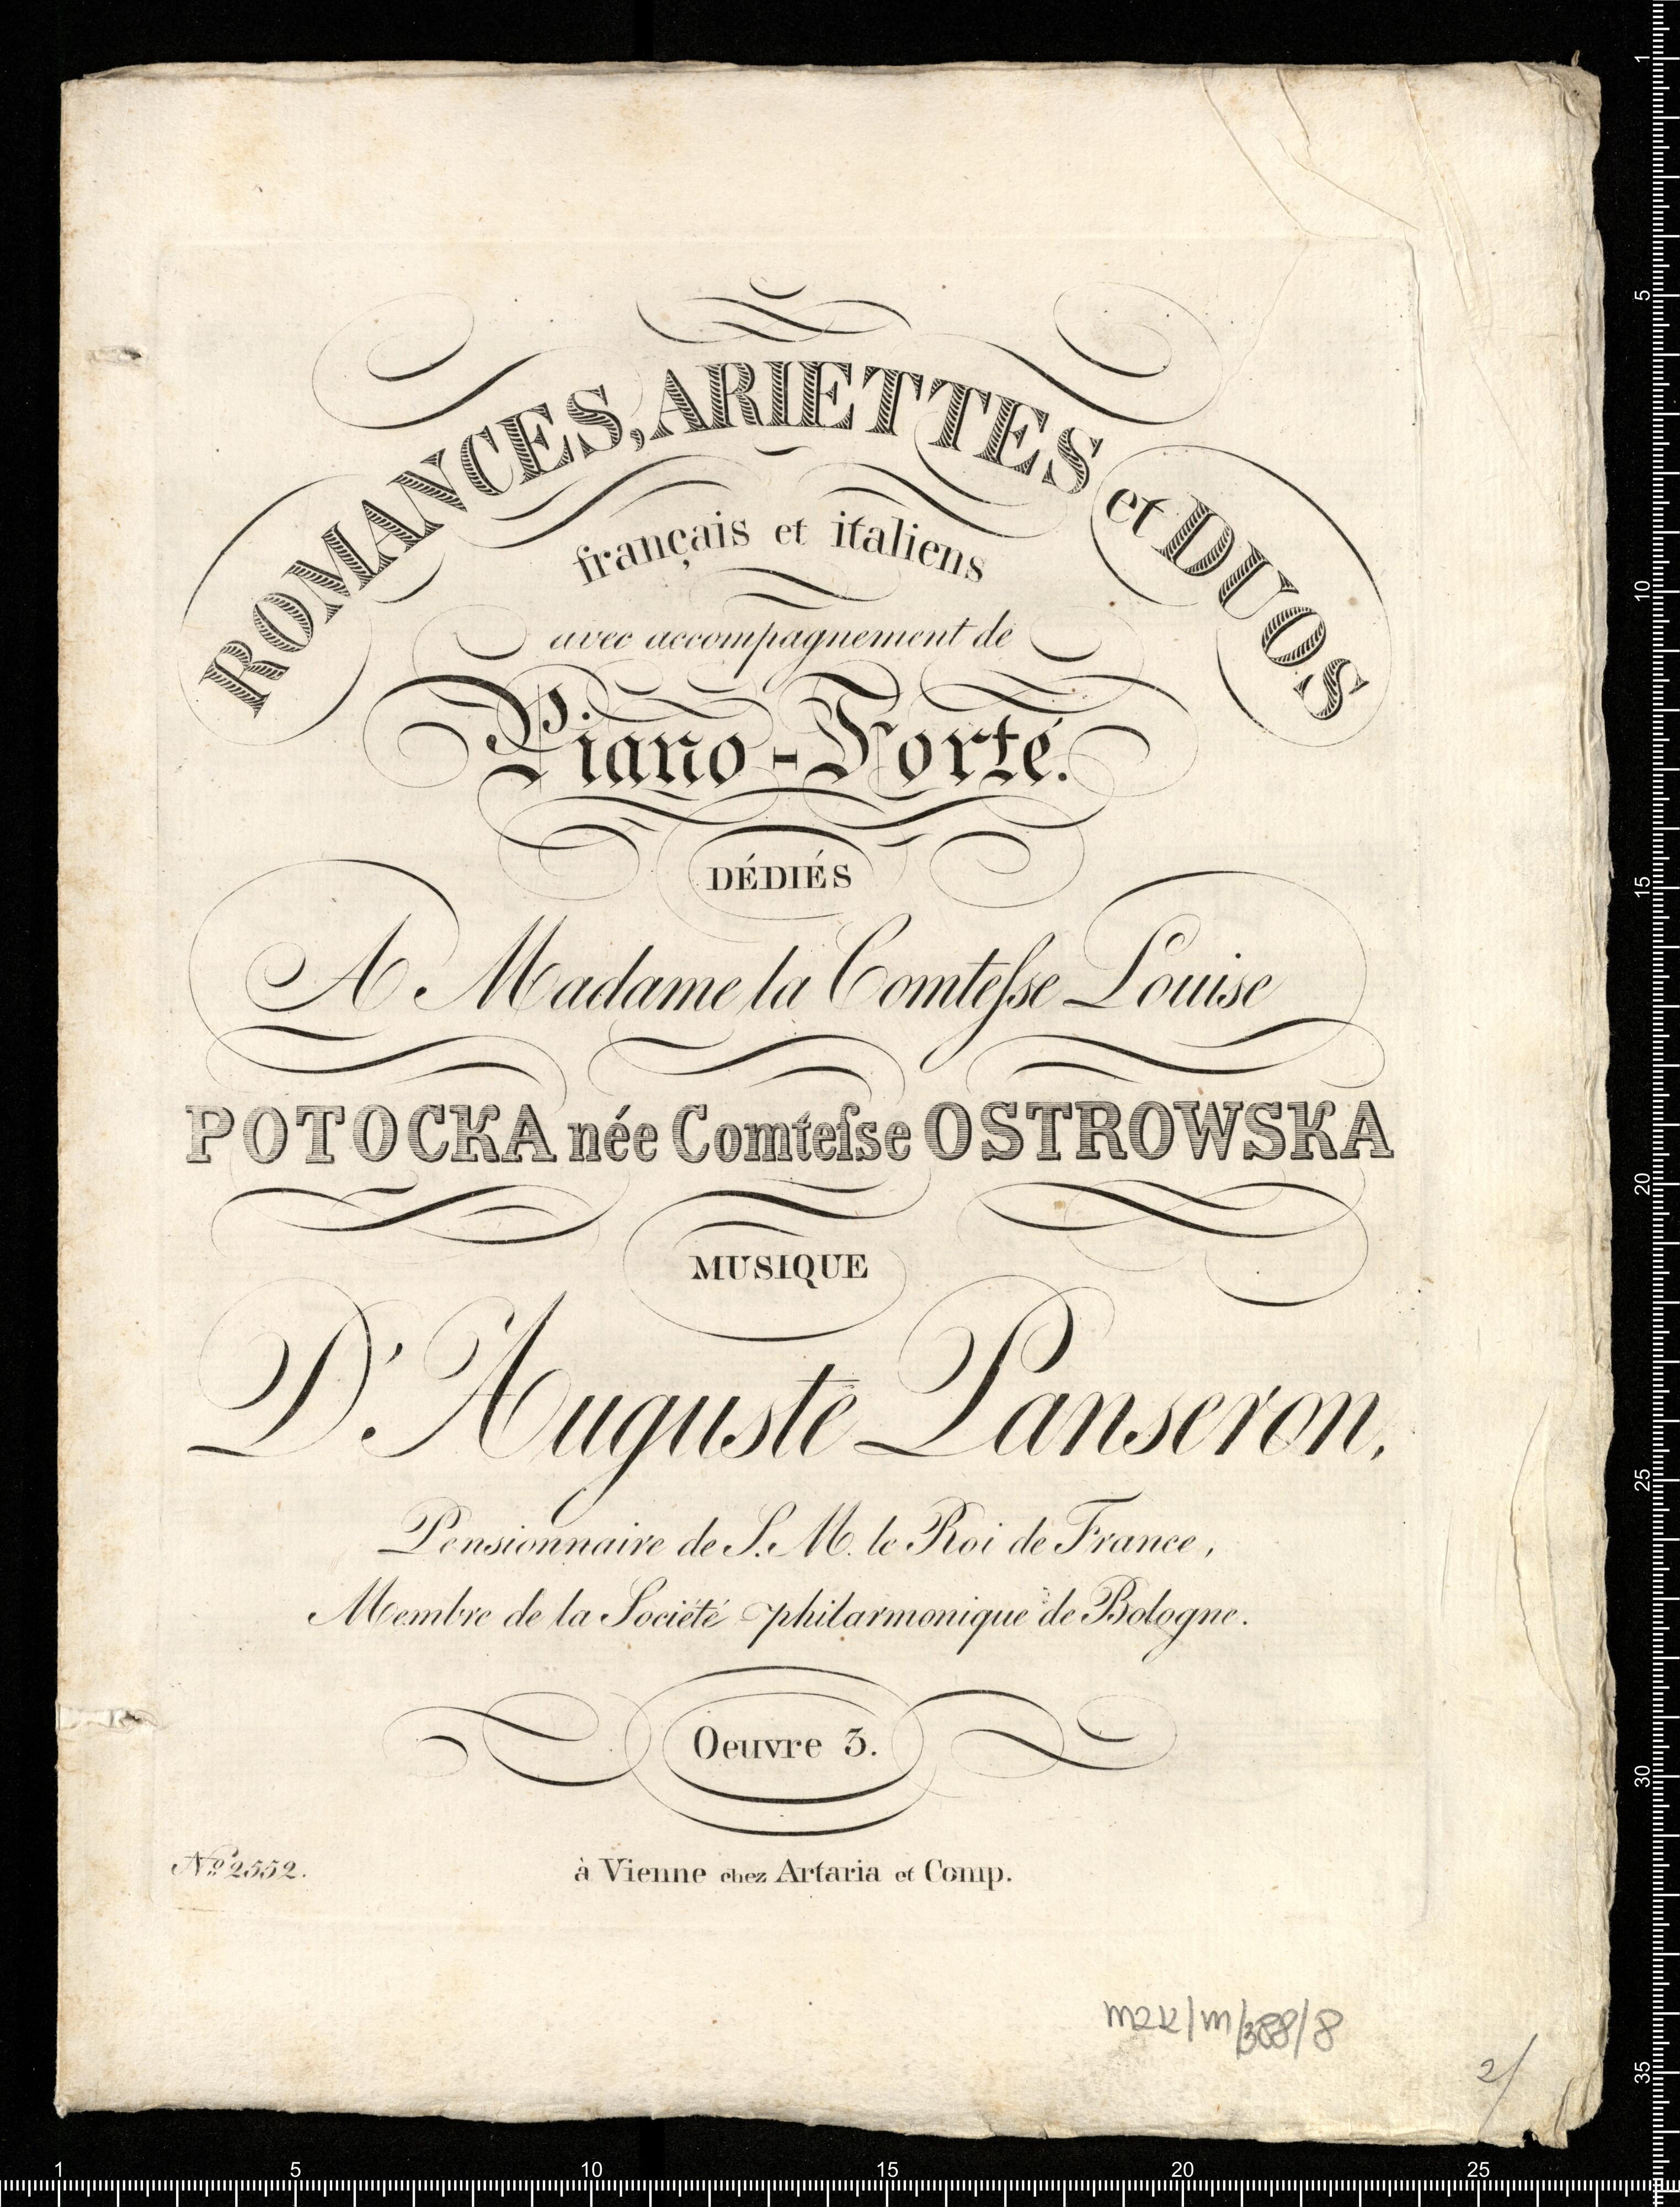 ROMANCES, ARIETTES et DUOS
français et italiens
avec accompagnement de
Piano-Forté.
DÉDIÉS
A Madame la Comteſse Louise
POTOCKA née Comteſse OSTROWSKA
MUSIQUE
D'Auguste Panseron,
Pensionnaire de S. M. le Roi de France,
Membre de la Société philarmonique de Bologne.
Oeuvre 3.
No. 2552.
à Vienne chez Artaria et Comp.
2/
1
5
10
15
20
25
30
35
1 5 10 15 20 25